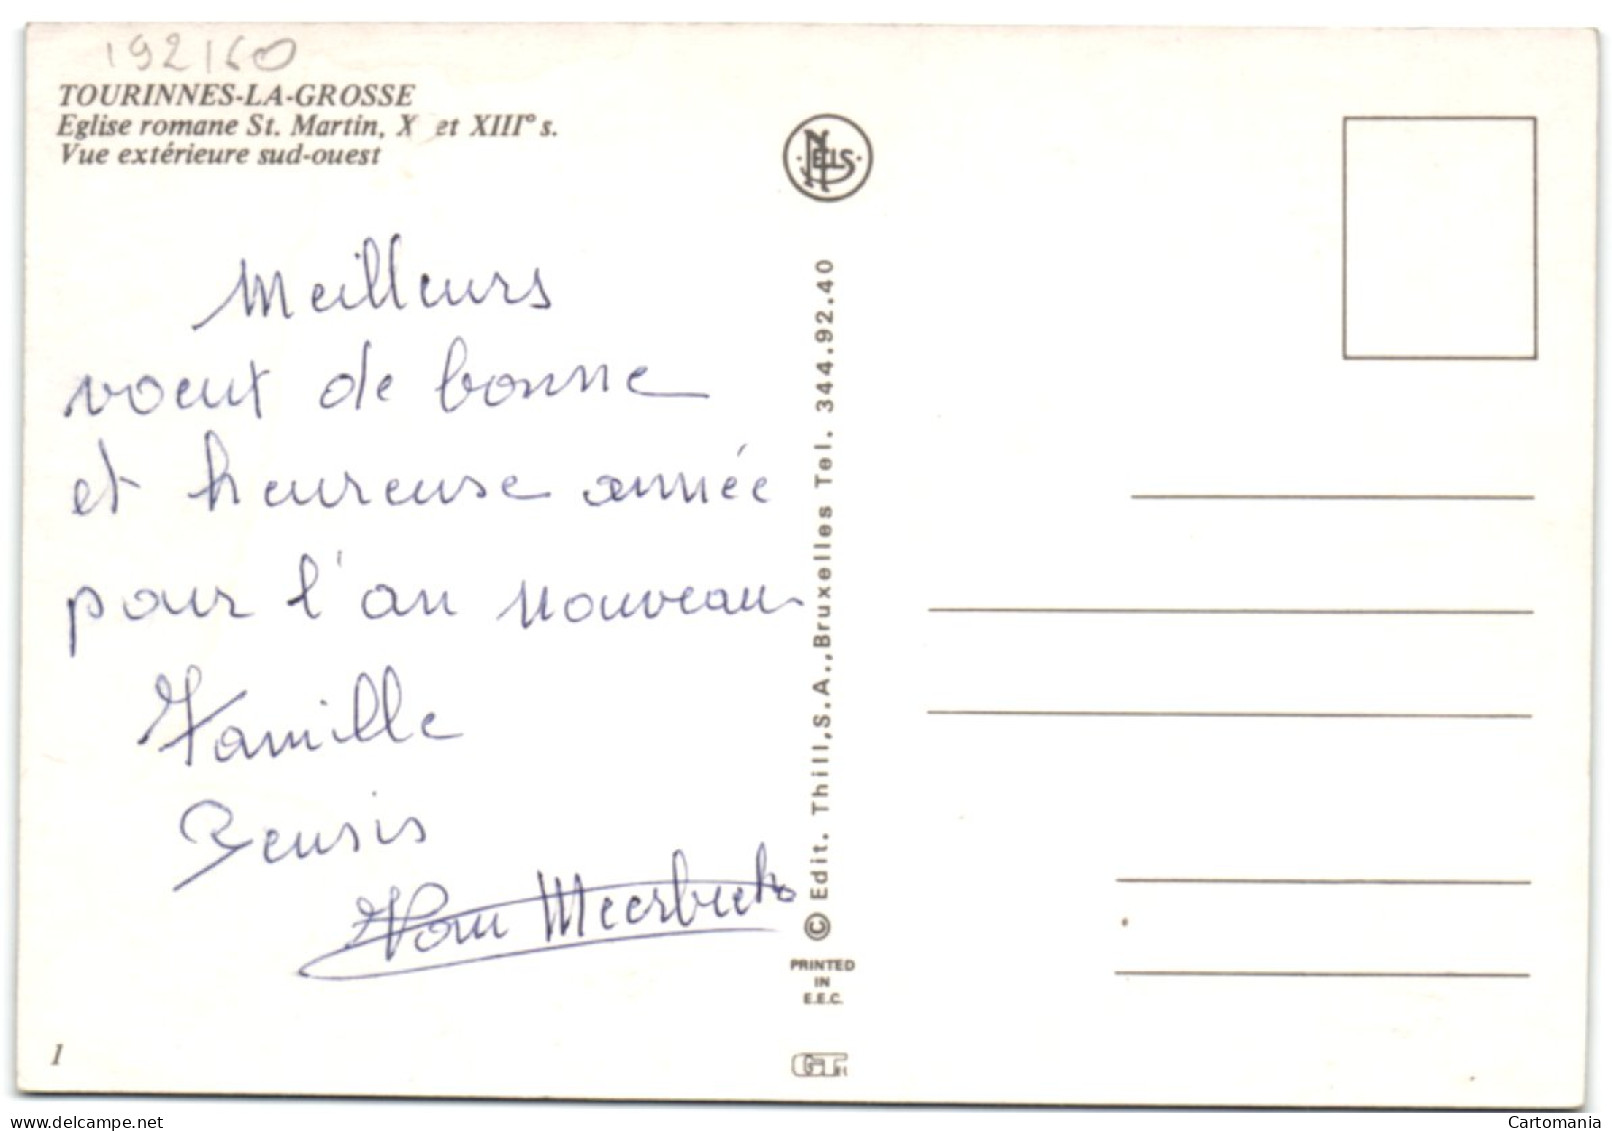 192160
TOURINNES-LA-GROSSE
Eglise romane St. Martin, X et XIII° s.
Vue extérieure sud-ouest
NELS
Meilleurs
voeux de bonne
et heureuse année
pour l'an nouveau
Famille
Van Meerbeek
© Edit. Thill, S.A., Bruxelles Tel. 344.92.40
PRINTED
IN
E.E.C.
1
GT
Cartomania